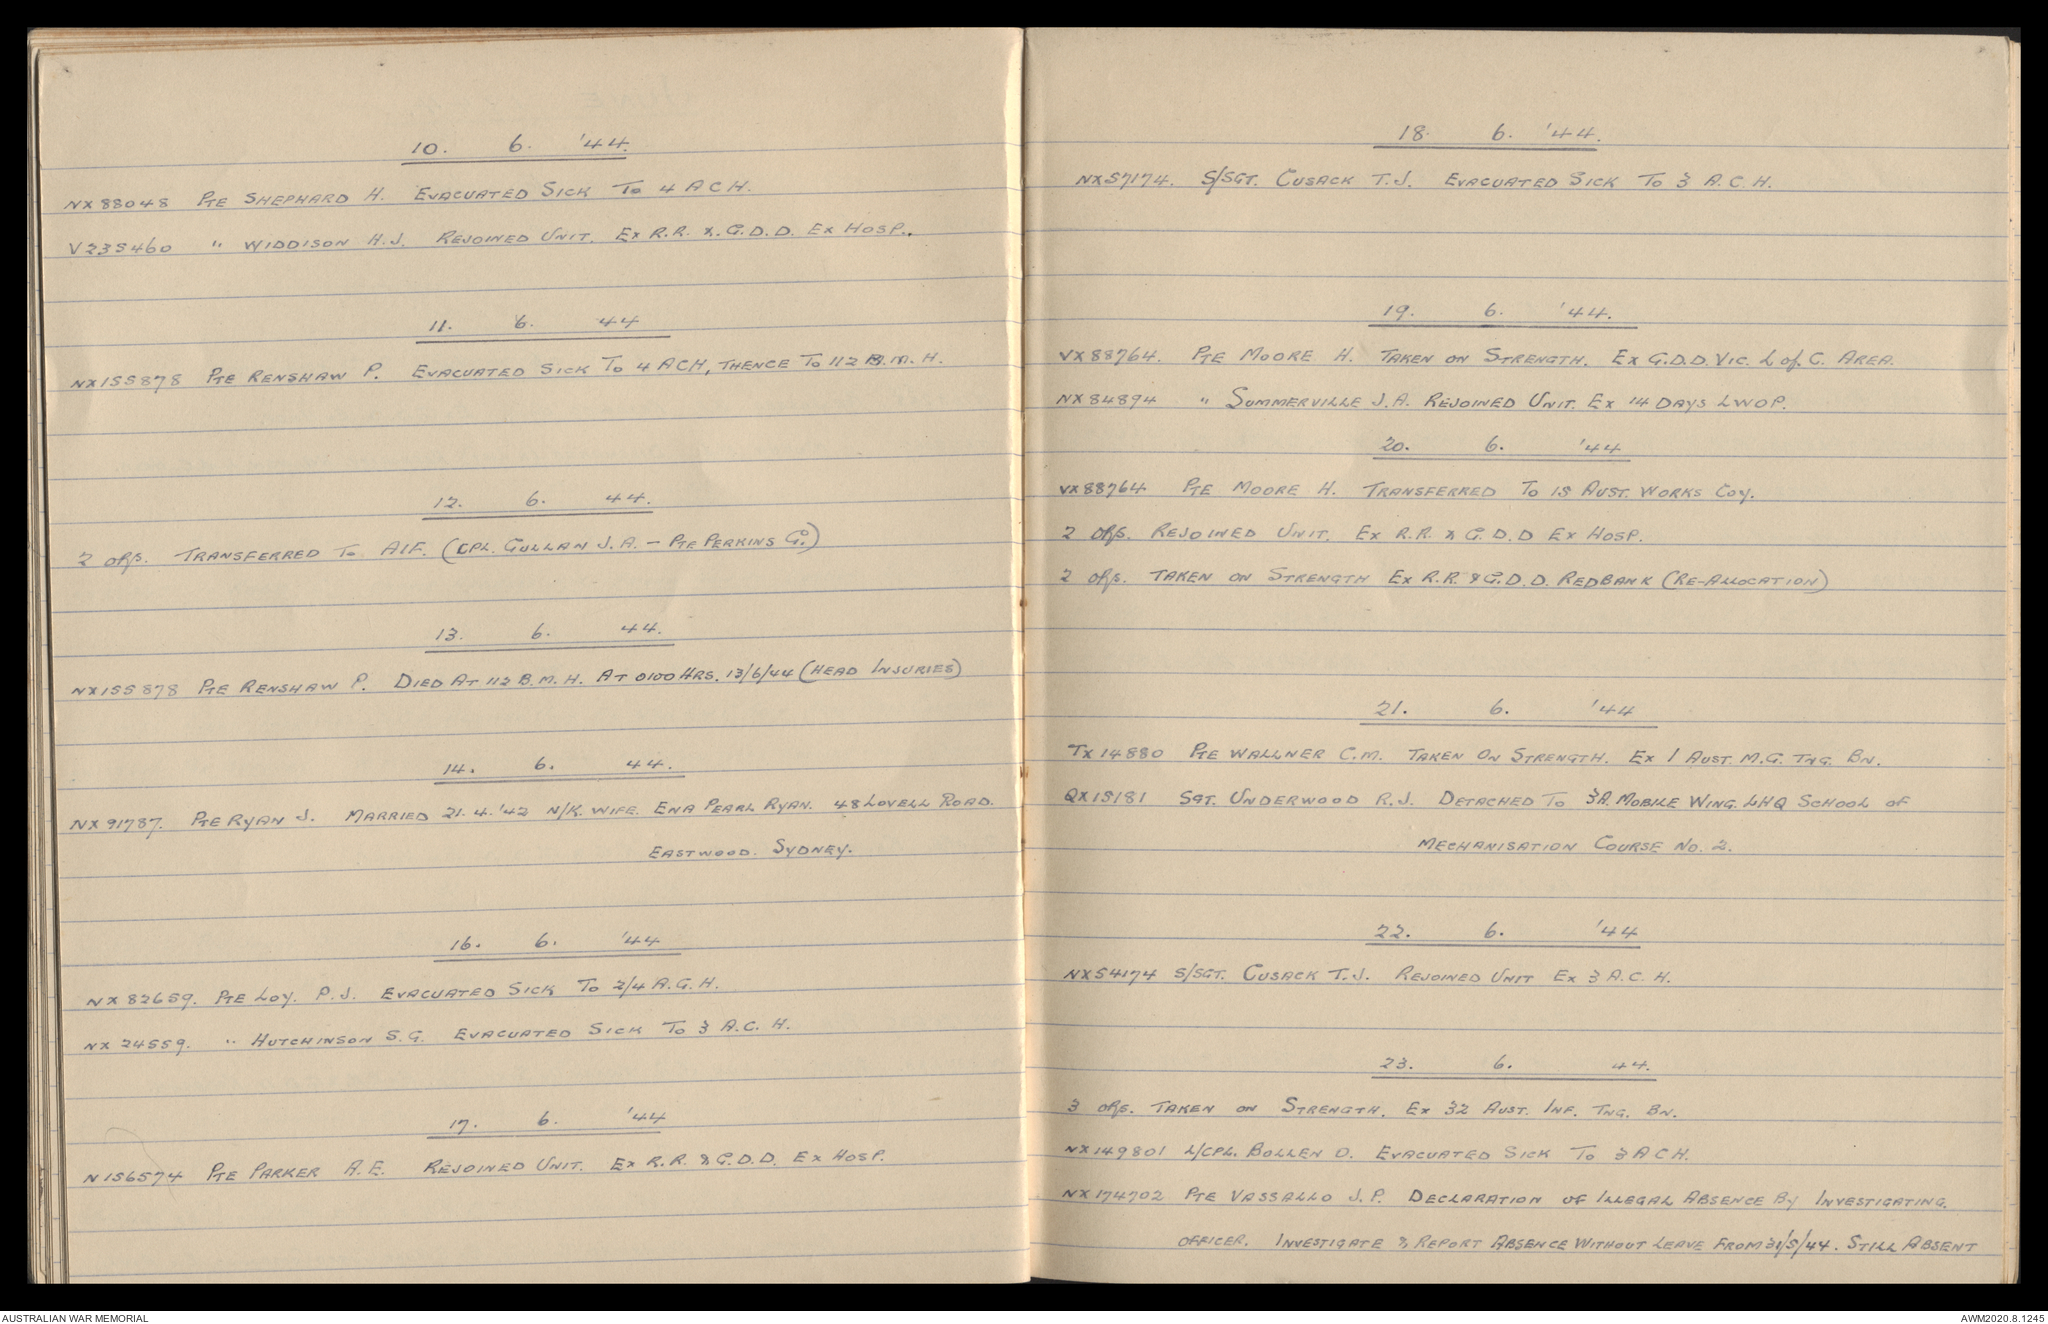 10. 6. '44.
NX88048 Pte SHEPHARD H. EVACUATED SICK TO 4 ACH.
V235460 " WIDDISON H.J. REJOINED UNIT. EX R.R. & G.D.D. EX HOSP.
11. 6. 44
NX155878 Pte RENSHAW P. EVACUATED SICK TO 4 ACH, THENCE TO 112 B.M.H.
12. 6. 44.
2 ORs. TRANSFERRED TO AIF. (CPL. GULLAN J.A. – Pte PERKINS G.)
13. 6. 44.
NX155878 Pte RENSHAW P. DIED AT 112 B.M.H. AT 0100 HRS. 13/6/44 (HEAD INJURIES)
14. 6. 44.
NX91787. Pte RYAN J. MARRIED 21.4.'42 N/K. WIFE. ENA PEARL RYAN. 48 LOVELL ROAD.
EASTWOOD. SYDNEY.
16. 6. '44
NX82659. Pte LOY. P.J. EVACUATED SICK TO 2/4 A.G.H.
NX24559. " HUTCHINSON S.G. EVACUATED SICK TO 3 A.C.H.
17. 6. '44
N156574 Pte PARKER A.E. REJOINED UNIT. EX R.R. & G.D.D. EX HOSP.
18. 6. '44.
NX57174. S/SGT. CUSACK T.J. EVACUATED SICK TO 3 A.C.H.
19. 6. '44.
VX88764. Pte MOORE H. TAKEN ON STRENGTH. EX G.D.D. VIC. L of C. AREA.
NX84894 " SUMMERVILLE J.A. REJOINED UNIT. EX 14 DAYS LWOP.
20. 6. '44
VX88764 Pte MOORE H. TRANSFERRED TO 15 AUST. WORKS COY.
2 ORs. REJOINED UNIT. EX R.R. & G.D.D EX HOSP.
2 ORs. TAKEN ON STRENGTH EX R.R. & G.D.D. REDBANK (RE-ALLOCATION)
21. 6. '44
TX14880 Pte WALLNER C.M. TAKEN ON STRENGTH. EX 1 AUST. M.G. TNG. BN.
QX15181 SGT. UNDERWOOD R.J. DETACHED TO 3A. MOBILE WING. LHQ SCHOOL OF
MECHANISATION COURSE NO. 2.
22. 6. '44
NX54174 S/SGT. CUSACK T.J. REJOINED UNIT EX 3 A.C.H.
23. 6. 44.
3 ORs. TAKEN ON STRENGTH. EX 32 AUST. INF. TNG. BN.
NX149801 L/CPL. BOLLEN D. EVACUATED SICK TO 3 ACH.
NX174702 Pte VASSALLO J.P. DECLARATION OF ILLEGAL ABSENCE BY INVESTIGATING.
OFFICER. INVESTIGATE & REPORT ABSENCE WITHOUT LEAVE FROM 31/5/44. STILL ABSENT
AUSTRALIAN WAR MEMORIAL
AWM2020.8.1245